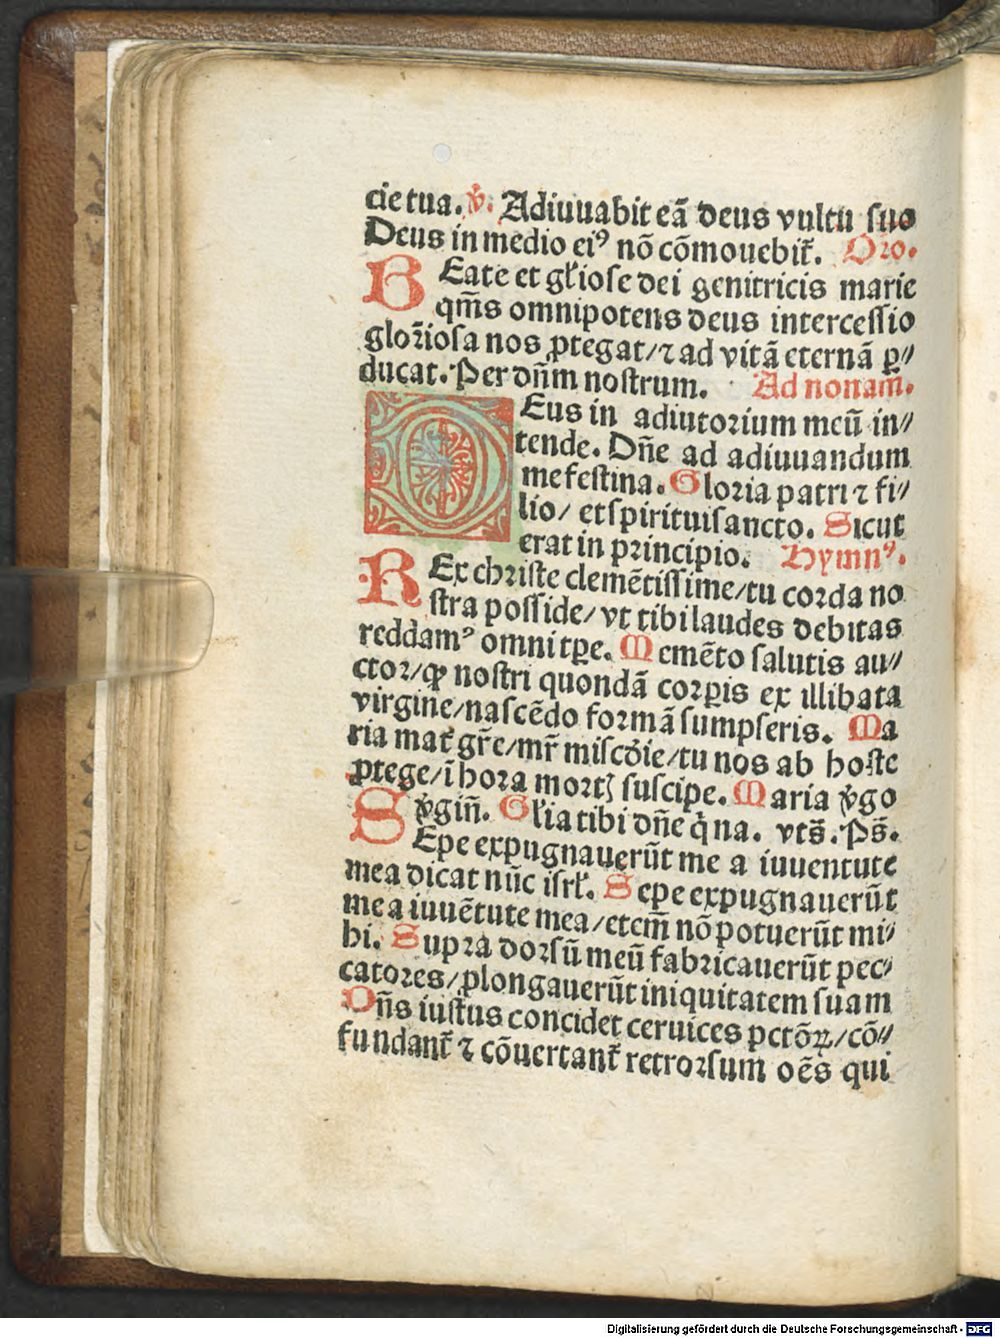 cie tua. ℣. Adiuuabit eã deus vultu suo
Deus in medio eiꝰ nõ cõmouebit᷑. Oꝛo.
BEate et gl̓iose dei genitricis marie
qm̃s omnipotens deus intercessio
gloꝛ̃iosa nos ꝓtegat/ ⁊ ad vitã eternã ꝑ//
ducat. Per dñm nostrum. Ad nonam.
DEus in adiutoꝛium meũ in//
tende. Dñe ad adiuuandum
me festina. Gloꝛia patri ⁊ fi//
lio/ et spiritui sancto. Sicut
erat in pꝛincipio. Hymnꝰ.
REx christe clemẽtissime/ tu coꝛda no
stra posside/ vt tibi laudes debitas
reddamꝰ omni tꝑe. Memẽto salutis au//
ctoꝛ/ ꝙ nostri quondã coꝛꝑis ex illibata
virgine/ nascẽdo foꝛmã sumpseris. Ma
ria mat᷑ gr̃e/ mr̃ miscďie/ tu nos ab hoste
ꝓtege/ ĩ hoꝛa moꝛtꝭ suscipe. Maria v̓go
v̓giñ. Gl̓ia tibi dñe q̇ na. vts̃. Ps̃.
SEpe expugnauerũt me a iuuentute
mea dicat nũc isrl̓. Sepe expugnauerũt
me a iuuẽtute mea/ etem̃ nõ potuerũt mi//
hi. Supꝛa doꝛsũ meũ fabꝛicauerũt pec//
catoꝛes/ ꝓlongauerũt iniquitatem suam
Dñs iustus concidet ceruices pctõꝝ/ cõ//
fundant᷑ ⁊ cõuertant᷑ retroꝛsum oẽs qui
Digitalisierung gefördert durch die Deutsche Forschungsgemeinschaft - DFG